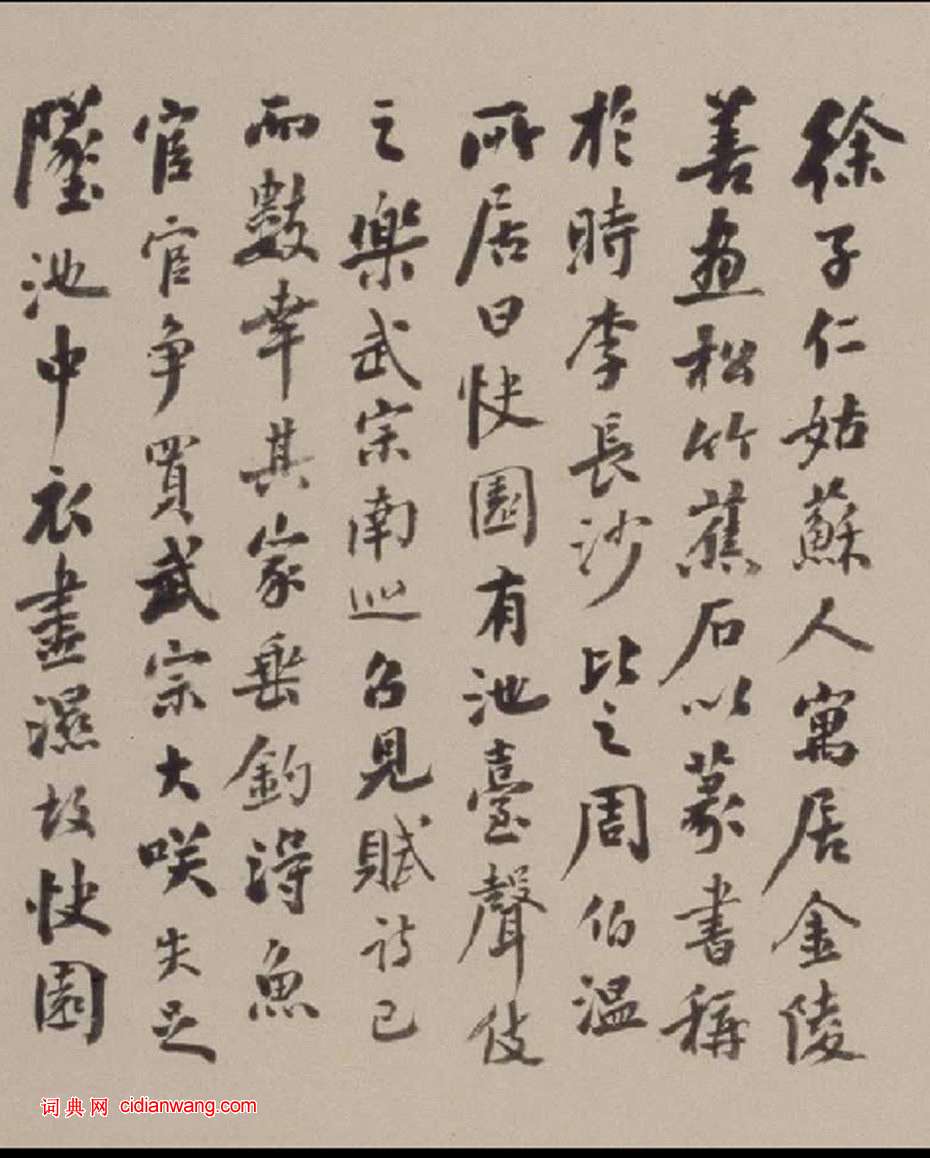 徐子仁姑蘇人寓居金陵
善畫松竹蕉石以篆書稱
於時李長沙比之周伯溫
所居曰快園有池臺聲伎
之樂武宗南巡召見賦詩已
而數幸其家垂釣得魚
宦官争買武宗大咲失足
墜池中衣盡濕故快園
词典网 cidianwang.com